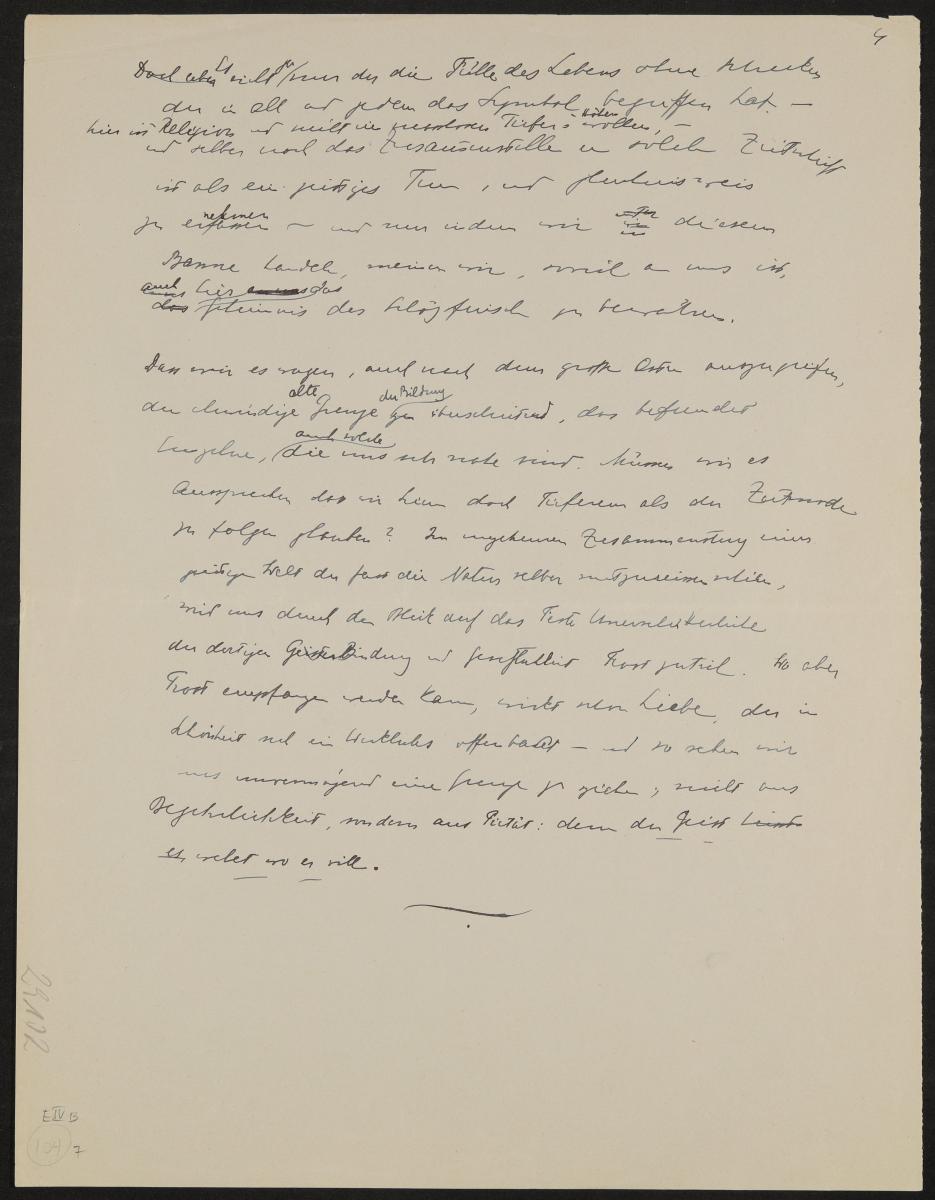 4
Doch aber Es nicht ja / nur der die Fülle des Lebens ohne
der in All und jedem das Symbol begriffen hat. —
hier ist Religion und nicht im Tiefer - wollen, —
und selber noch das Zusammenstellen einer solchen Zeitschrift
ist als ein geistiges Tun, und gleichnisweis
zu erfassen nehmen — und nur indem wir unter in diesem
Banne handeln, meinen wir, soviel an uns ist,
auch hier das
das Geheimnis des Schöpferisch zu bewahren.
Dass wir es wagen, auch nach dem großen Osten auszugreifen,
die ehrwürdige alte Grenze der Bildung überschreitend, das befremdet
Einzelne, auch solche die uns sehr nahe sind. Müssen wir es
aussprechen dass wir hierin doch Tieferem als der Zeitmode
zu folgen glauben? Im ungeheuren Zusammensturz einer
geistigen Welt der fast die Natur selber mitzureissen schien,
wird uns durch den Blick auf das Feste Unerschütterliche
der dortigen Geister Bindung und Trost zuteil. Wo aber
Trost empfangen werden kann, wirkt schon Liebe, der in
Schönheit sich ein Wirkliches offenbart — und so sehen wir
uns unvermögend eine Grenze zu ziehen, nicht aus
Begehrlichkeit, sondern aus Pietät: denn der Geist
er wehet wo er will.
29102
E IV B
104
7